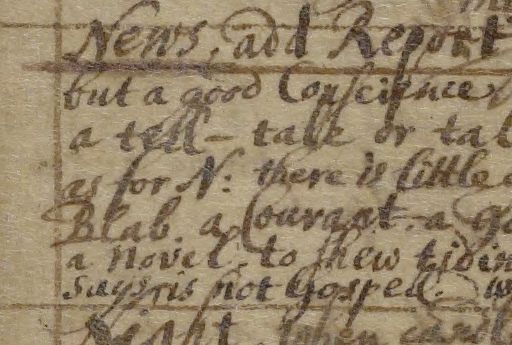 News, add Report
but a good Conscience
a tell-tale or tal
as for N: there is little
Blab. a Courant. a go
a Novel. to shew tidin
says, is not Gospel. w
Night. when